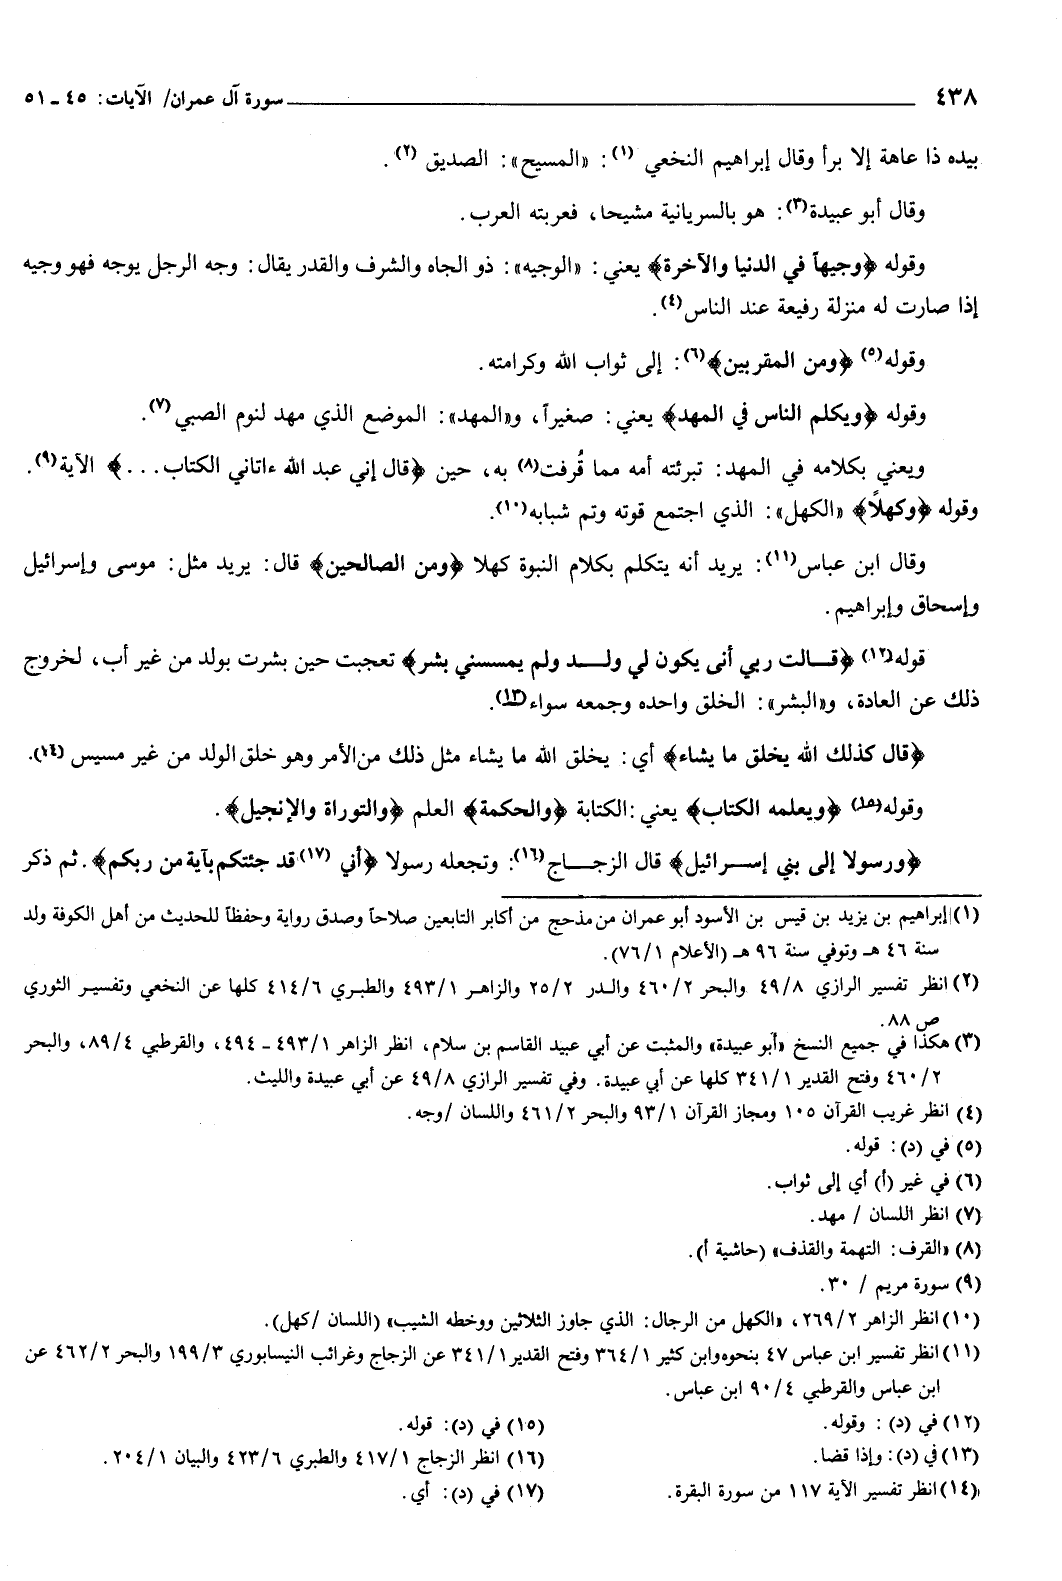 ٤٣٨ سورة آل عمران/ الآيات: ٤٥ ـ ٥١
بيده ذا عاهة إلا برأ وقال إبراهيم النخعي (١): «المسيح»: الصديق (٢).
وقال أبو عبيدة(٣): هو بالسريانية مشيحا، فعربته العرب.
وقوله ﴿وجيهاً في الدنيا والآخرة﴾ يعني: «الوجيه»: ذو الجاه والشرف والقدر يقال: وجه الرجل يوجه فهو وجيه
إذا صارت له منزلة رفيعة عند الناس(٤).
وقوله(٥) ﴿ومن المقربين﴾(٦): إلى ثواب الله وكرامته.
وقوله ﴿ويكلم الناس في المهد﴾ يعني: صغيراً، و«المهد»: الموضع الذي مهد لنوم الصبي(٧).
ويعني بكلامه في المهد: تبرئته أمه مما قُرفت(٨) به، حين ﴿قال إني عبد الله ءاتاني الكتاب...﴾ الآية(٩).
وقوله ﴿وكهلاً﴾ «الكهل»: الذي اجتمع قوته وتم شبابه(١٠).
وقال ابن عباس(١١): يريد أنه يتكلم بكلام النبوة كهلا ﴿ومن الصالحين﴾ قال: يريد مثل: موسى وإسرائيل
وإسحاق وإبراهيم.
قوله(١٢) ﴿قـالت ربي أنى يكون لي ولـد ولم يمسسني بشر﴾ تعجبت حين بشرت بولد من غير أب، لخروج
ذلك عن العادة، و«البشر»: الخلق واحده وجمعه سواء(١٣).
﴿قال كذلك الله يخلق ما يشاء﴾ أي: يخلق الله ما يشاء مثل ذلك من الأمر وهو خلق الولد من غير مسيس (١٤).
وقوله(١٥) ﴿ويعلمه الكتاب﴾ يعني: الكتابة ﴿والحكمة﴾ العلم ﴿والتوراة والإنجيل﴾.
﴿ورسولا إلى بني إسـرائيل﴾ قال الزجـاج(١٦): وتجعله رسولا ﴿أني (١٧) قد جئتكم بآية من ربكم﴾. ثم ذكر
(١) إبراهيم بن يزيد بن قيس بن الأسود أبو عمران من مذحج من أكابر التابعين صلاحاً وصدق رواية وحفظاً للحديث من أهل الكوفة ولد
سنة ٤٦ هـ وتوفي سنة ٩٦ هـ (الأعلام ٧٦/١).
(٢) انظر تفسير الرازي ٤٩/٨ والبحر ٤٦٠/٢ والـدر ٢٥/٢ والزاهـر ٤٩٣/١ والطبـري ٤١٤/٦ كلها عن النخعي وتفسيـر الثوري
ص ٨٨.
(٣) هكذا في جميع النسخ «أبو عبيدة» والمثبت عن أبي عبيد القاسم بن سلام، انظر الزاهر ٤٩٣/١ ـ ٤٩٤، والقرطبي ٨٩/٤، والبحر
٤٦٠/٢ وفتح القدير ٣٤١/١ كلها عن أبي عبيدة. وفي تفسير الرازي ٤٩/٨ عن أبي عبيدة والليث.
(٤) انظر غريب القرآن ١٠٥ ومجاز القرآن ٩٣/١ والبحر ٤٦١/٢ واللسان /وجه.
(٥) في (د): قوله.
(٦) في غير (أ) أي إلى ثواب.
(٧) انظر اللسان / مهد.
(٨) «القرف: التهمة والقذف» (حاشية أ).
(٩) سورة مريم / ٣٠.
(١٠) انظر الزاهر ٢٦٩/٢، «الكهل من الرجال: الذي جاوز الثلاثين ووخطه الشيب» (اللسان /كهل).
(١١) انظر تفسير ابن عباس ٤٧ بنحوه وابن كثير ٣٦٤/١ وفتح القدير ٣٤١/١ عن الزجاج وغرائب النيسابوري ١٩٩/٣ والبحر ٤٦٢/٢ عن
ابن عباس والقرطبي ٩٠/٤ ابن عباس.
(١٢) في (د) : وقوله.
(١٣) في (د): وإذا قضا.
(١٤) انظر تفسير الآية ١١٧ من سورة البقرة.
(١٥) في (د): قوله.
(١٦) انظر الزجاج ٤١٧/١ والطبري ٤٢٣/٦ والبيان ٢٠٤/١.
(١٧) في (د): أي.